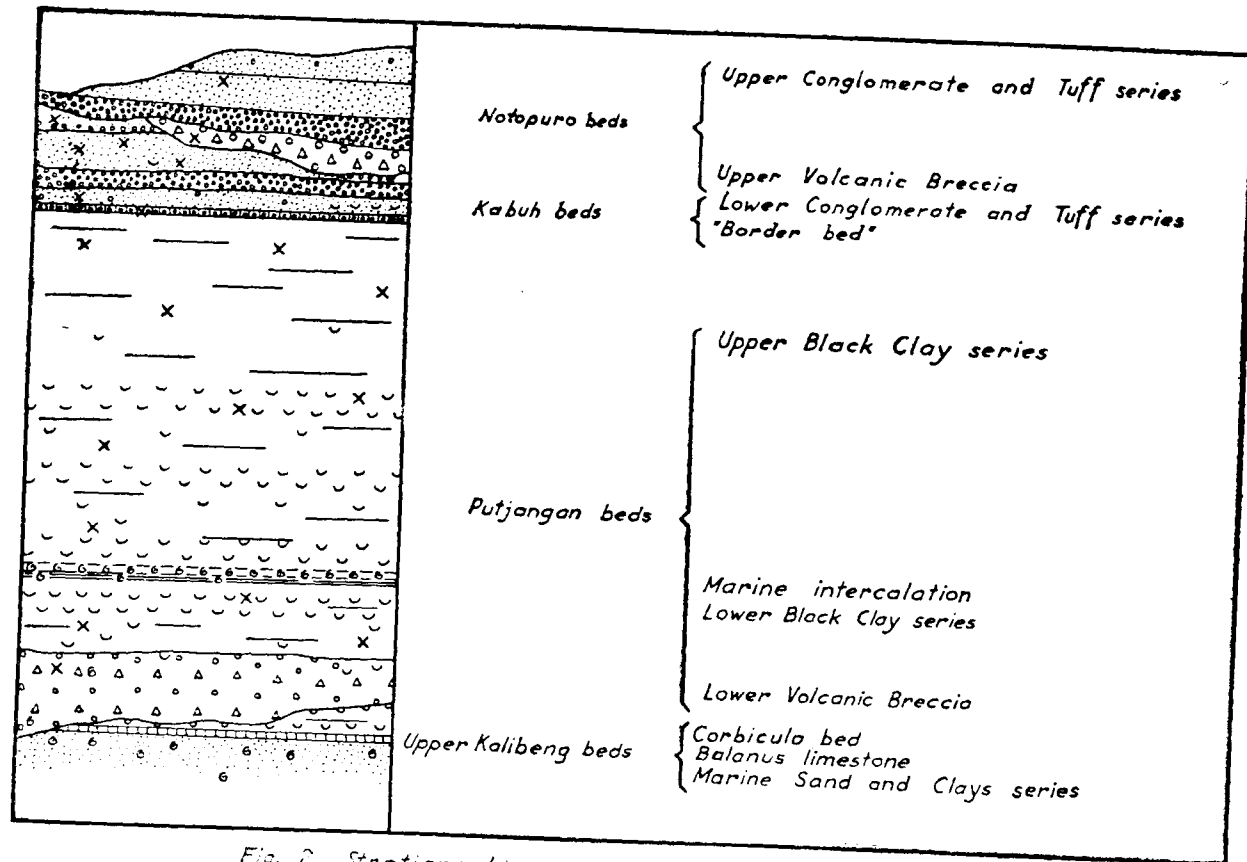 Upper Conglomerate and Tuff series
Notopuro beds
Upper Volcanic Breccia
Kabuh beds
Lower Conglomerate and Tuff series
"Border bed"
Upper Black Clay series
Putjangan beds
Marine intercalation
Lower Black Clay series
Lower Volcanic Breccia
Upper Kalibeng beds
Corbicula bed
Balanus limestone
Marine Sand and Clays series
Fig.